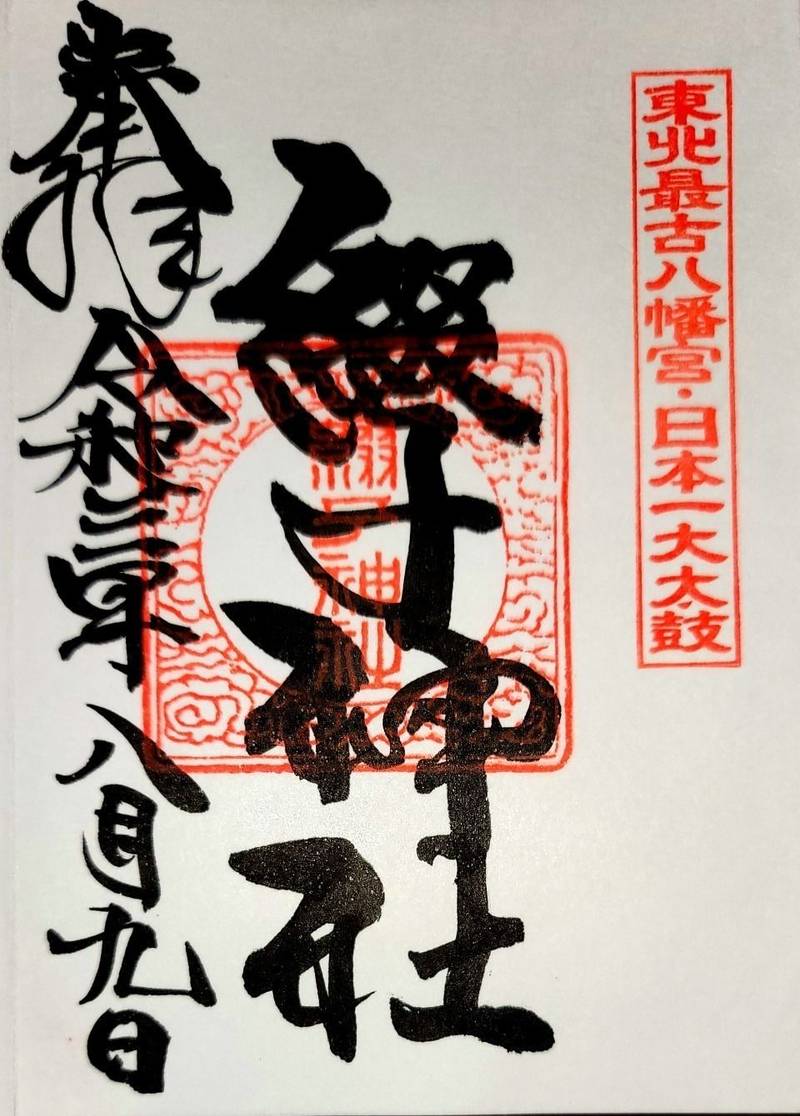 東北最古八幡宮・日本一大太鼓
綴子神社
綴子
神社
奉拝 令和三年八月九日